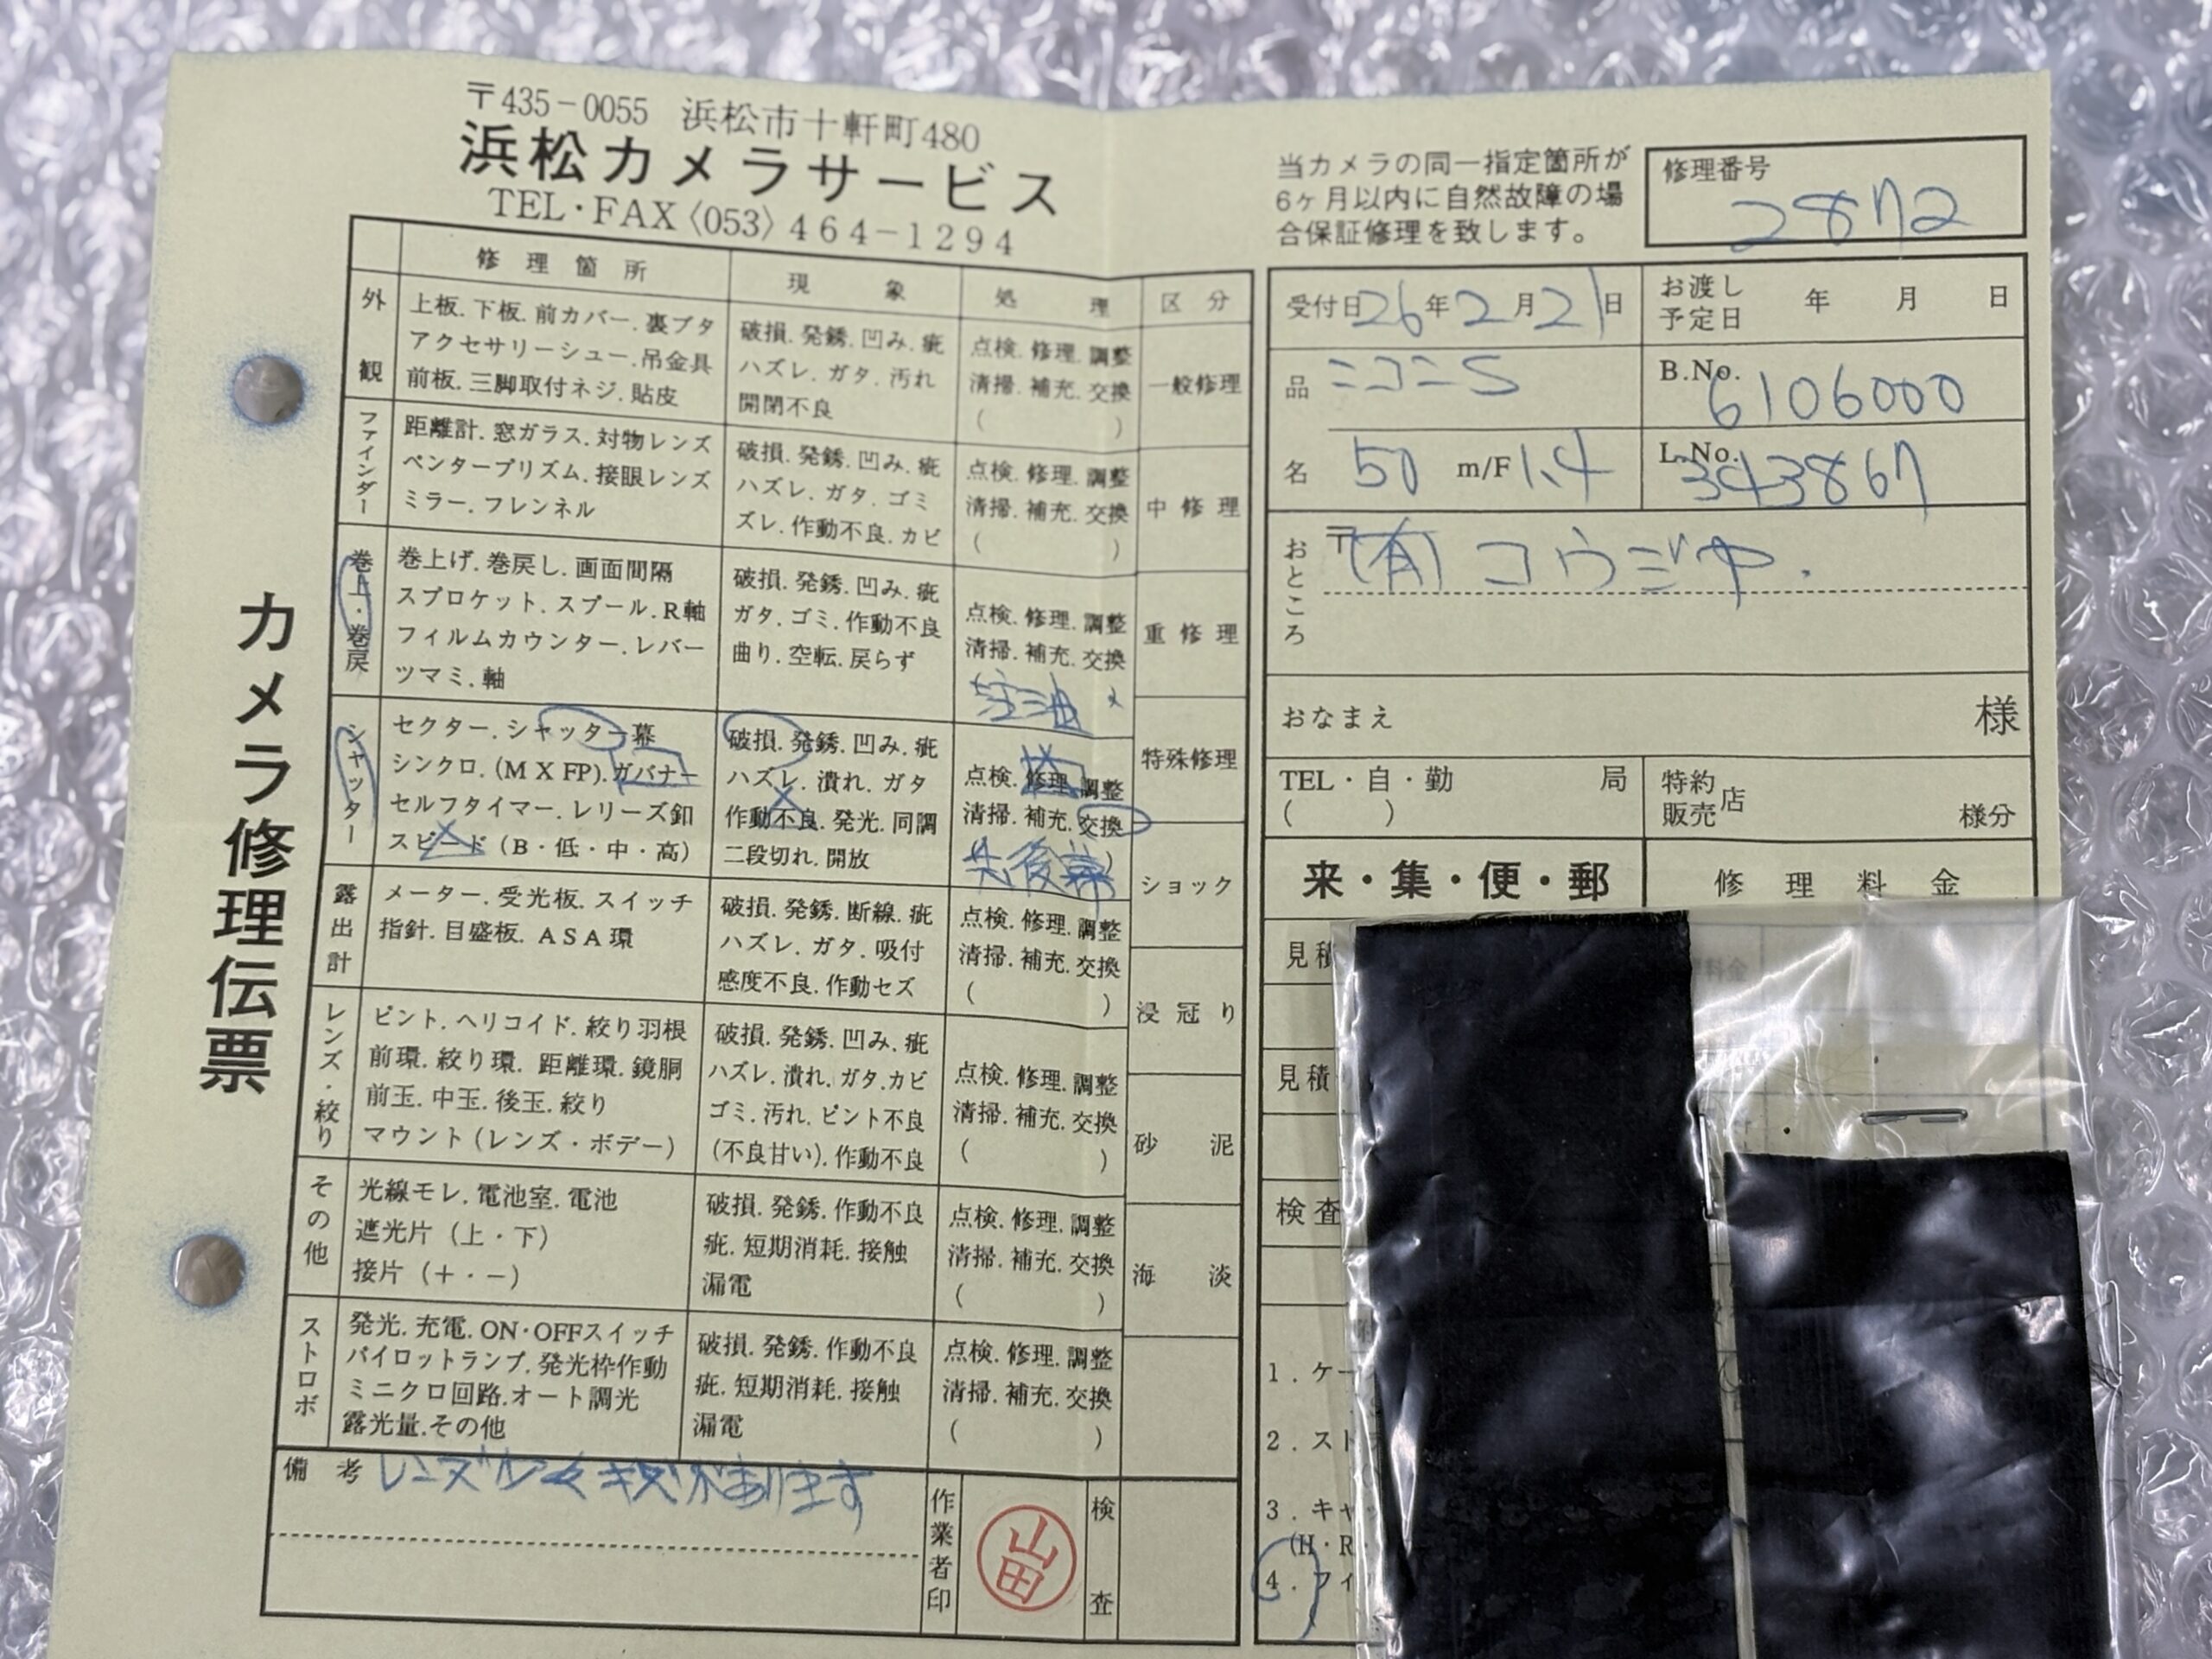 〒435-0055 浜松市十軒町480
浜松カメラサービス
TEL・FAX〈053〉464-1294
カメラ修理伝票
修理箇所 現象 処理 区分
外観
上板.下板.前カバー.裏ブタ
アクセサリーシュー.吊金具
前板.三脚取付ネジ.貼皮
破損.発銹.凹み.疵
ハズレ.ガタ.汚れ
開閉不良
点検.修理.調整
清掃.補充.交換
( )
一般修理
ファインダー
距離計.窓ガラス.対物レンズ
ペンタープリズム.接眼レンズ
ミラー.フレンネル
破損.発銹.凹み.疵
ハズレ.ガタ.ゴミ
ズレ.作動不良.カビ
点検.修理.調整
清掃.補充.交換
( )
中修理
巻上・巻戻
巻上げ.巻戻し.画面間隔
スプロケット.スプール.R軸
フィルムカウンター.レバー
ツマミ.軸
破損.発銹.凹み.疵
ガタ.ゴミ.作動不良
曲り.空転.戻らず
点検.修理.調整
清掃.補充.交換
注油
重修理
シャッター
セクター.シャッター幕
シンクロ.(M X FP).ガバナー
セルフタイマー.レリーズ釦
スピード(B・低・中・高)
破損.発銹.凹み.疵
ハズレ.潰れ.ガタ
作動不良.発光.同調
二段切れ.開放
点検.修理.調整
清掃.補充.交換
先後幕
特殊修理
ショック
露出計
メーター.受光板.スイッチ
指針.目盛板.ASA環
破損.発銹.断線.疵
ハズレ.ガタ.吸付
感度不良.作動セズ
点検.修理.調整
清掃.補充.交換
( )
浸冠り
レンズ・絞り
ピント.ヘリコイド.絞り羽根
前環.絞り環.距離環.鏡胴
前玉.中玉.後玉.絞り
マウント(レンズ・ボデー)
破損.発銹.凹み.疵
ハズレ.潰れ.ガタ.カビ
ゴミ.汚れ.ピント不良
(不良甘い).作動不良
点検.修理.調整
清掃.補充.交換
( )
砂泥
その他
光線モレ.電池室.電池
遮光片(上・下)
接片(+・−)
破損.発銹.作動不良
疵.短期消耗.接触
漏電
点検.修理.調整
清掃.補充.交換
( )
海淡
ストロボ
発光.充電.ON・OFFスイッチ
パイロットランプ.発光枠作動
ミニクロ回路.オート調光
露光量.その他
破損.発銹.作動不良
疵.短期消耗.接触
漏電
点検.修理.調整
清掃.補充.交換
( )
備考
作業者印
山田
検査
当カメラの同一指定箇所が
6ヶ月以内に自然故障の場
合保証修理を致します。
修理番号
2872
受付日 26年2月21日
お渡し予定日 年 月 日
品名
ニコンS
B.No. 6106000
50 m/F 1.4
L.No. 343867
おところ
〒
(有)コウジヤ.
おなまえ 様
TEL・自・勤 局
( )
特約
販売店 様分
来・集・便・郵
修理料金
見積
見積
検査
1.ケー
2.スト
3.キャ
(H・R・
4.フィ